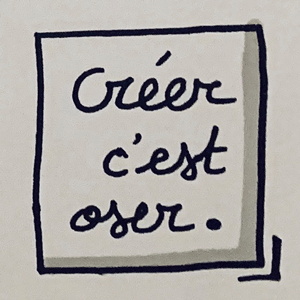 Créer
c'est
oser.